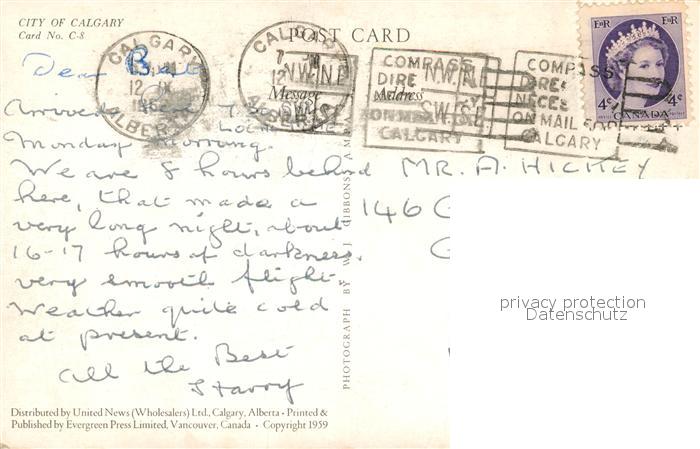 CITY OF CALGARY
Card No. C-8
POST CARD
CALGARY
12 IX
ALBERTA
CALGARY
ALBERTA
N.W. N.E
S.W.
COMPASS
DIRE
ON MAIL
CALGARY
N.W. N.
S.W. S.E
COMPASS
DIRE
NECES
ON MAIL
CALGARY
EIIR EIIR
4¢ 4¢
CANADA
Message
Address
Dear
Arrived here
Local time
Monday morning.
We are 8 hours behind
here, that made a
very long night, about
16-17 hours of darkness.
very smooth flight.
Weather quite cold
at present.
All the Best
Harry
MR. A. HICKEY
146
PHOTOGRAPH BY W. J. GIBBONS
privacy protection
Datenschutz
Distributed by United News (Wholesalers) Ltd., Calgary, Alberta • Printed &
Published by Evergreen Press Limited, Vancouver, Canada • Copyright 1959